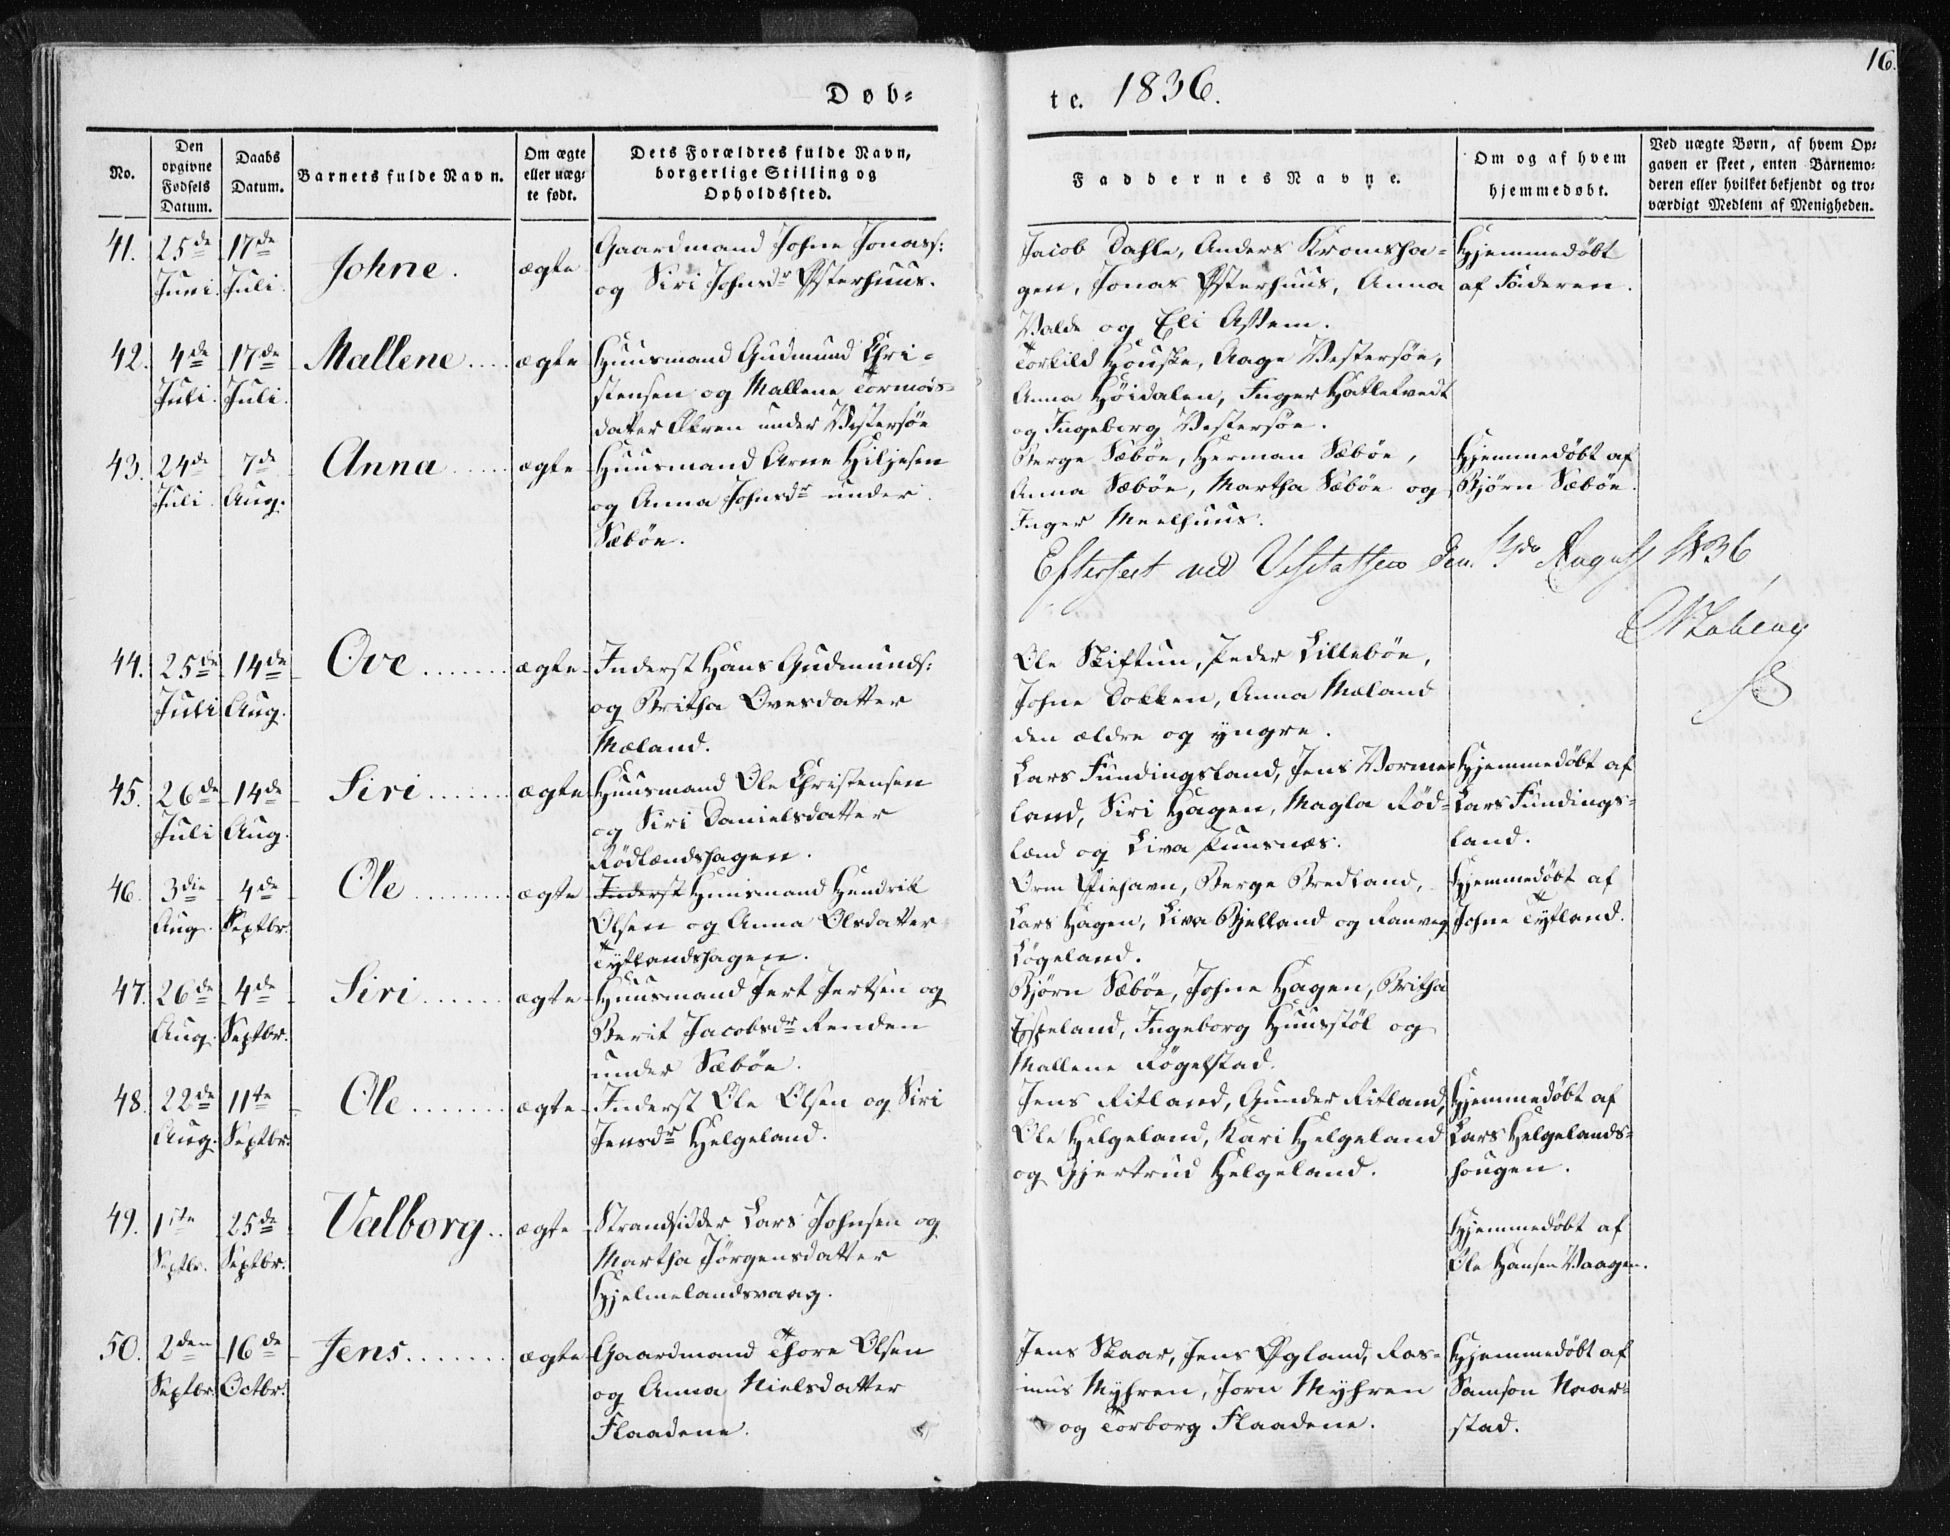 16.
Døb=
te. 1836.
No.
Den opgivne Fødsels Datum.
Daabs Datum.
Barnets fulde Navn.
Om ægte eller uæg= te født.
Dets Forældres fulde Navn, borgerlige Stilling og Opholdssted.
Faddernes Navne.
Om og af hvem hjemmedøbt.
Ved uægte Børn, af hvem Op= gaven er skeet, enten Barnemo= deren eller hvilket bekjendt og tro= værdigt Medlem af Menigheden.
41. 25de Juni. 17de Juli. Johne. ægte
Gaardmand Johne Jonass:
og Siri Johnsdr Østerhuus.
Jacob Dahle, Anders Kromsha=
gen, Jonas Østerhuus, Anna
Valde og Eli Assem.
Hjemmedøbt
af Faderen.
42. 4de Juli. 17de Juli. Mallene.... ægte
Huusmand Gudmund Chri=
stensen og Mallene Tormods=
datter Ekren under Vestersøe
Torkild Houske, Aage Vestersøe,
Anna Høidalen, Inger Hatletvedt
og Ingeborg Vestersøe.
43. 24de Juli. 7de Aug. Anna..... ægte
Huusmand Arne Hiljesen
og Anna Johnsdr under
Sæbøe.
Berge Sæbøe, Herman Sæbøe,
Anna Sæbøe, Martha Sæbøe og
Inger Meelhuus.
Hjemmedøbt af
Bjørn Sæbøe.
Efterseet ved Visitatsen den August 1836
44. 25de Juli 14de Aug. Ove....... ægte
Inderst Hans Gudmunds:
og Britha Ovesdatter
Mæland.
Ole Skiftun, Peder Lillebøe,
Johne Dokken, Anna Mæland
den ældre og yngre.
45. 26de Juli 14de Aug. Siri...... ægte
Huusmand Ole Christensen
og Siri Danielsdatter
Rødlændshagen.
Lars Fundingsland, Jens Vorme
land, Siri Hagen, Magla Rød=
lænd og Liva Puusnæs.
Hjemmedøbt af
Lars Fundings=
land.
46. 3die Aug. 4de Septbr. Ole........ ægte
Inderst Huusmand Hendrik
Olsen og Anna Olsdatter
Tytlandshagen.
Orm Riehavn, Berge Bredland,
Lars Hagen, Liva Bjelland og Ranveg
Løgeland.
Hjemmedøbt af
Johne Tytland.
47. 26de Aug. 4de Septbr. Siri...... ægte
Huusmand Iert Iertsen og
Berit Jacobsdr Renden
under Sæbøe.
Bjørn Sæbøe, Johne Hagen, Britha
Espeland, Ingeborg Huusstøl og
Mallene Røgelstad.
48. 22de Aug. 11te Septbr. Ole....... ægte
Inderst Ole Olsen og Siri
Jensdr Helgeland.
Jens Ritland, Gunder Ritland,
Ole Helgeland, Kari Helgeland
og Gjertrud Helgeland.
Hjemmedøbt af
Lars Helgelands=
hougen.
49. 1ste Septbr. 25de Septbr. Valborg.. ægte
Strandsidder Lars Johnsen og
Martha Jørgensdatter
Hjelmelandsvaag.
Hjemmedøbt af
Ole Hansen Vaagen.
50. 2den Septbr. 16de Octbr. Jens....... ægte
Gaardmand Thore Olsen
og Anna Nielsdatter
Flaadene.
Jens Skaar, Jens Øgland, Ras=
mus Myhren, Jorn Myhren
og Torborg Flaadene.
Hjemmedøbt af
Samson Naar=
stad.